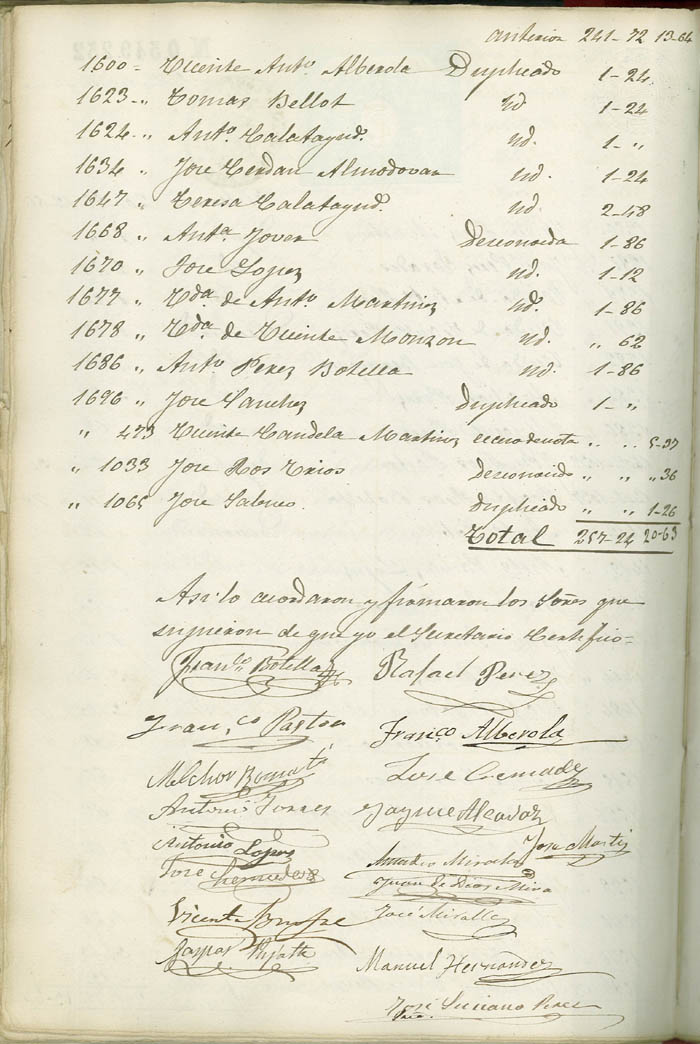 anterior 241-72 13-64
1600 = Vicente Antº. Alberola Duplicado 1-24
1623 -,, Tomas Bellot id 1-24
1624 -,, Antº. Calatayud. id. 1- ,,
1634 ,, Jose Cerdan Almodovar id. 1-24
1647 ,, Teresa Calatayud. id 2-48
1668 ,, Antª. Jover Desconocida 1-86
1670 ,, Jose Lopez id. 1-12
1677 ,, Vdª. de Antº. Martinez id. 1-86
1678 ,, Vdª. de Vicente Monzon id. ,, 62
1686 ,, Antº Perez Botella id. 1-86
1696 ,, Jose Sanchez Duplicado 1- ,,
,, 473 Vicente Candela Martinez ,, ,, 5-37
,, 1033 Jose Ros Desconocido ,, ,, ,, 36
,, 1065 Jose Duplicado ,, ,, 1-26
Total 257-24 20-63
Asi lo acordaron y firmaron los Sores que
supieron de que yo el Secretario Certifico=
Franco. Botella Rafael Perez
Fran,co Pastor Franco. Alberola
Melchor Jose
Antonio Torres Jayme Alcaraz
Antonio Lopez Amadeo Miralles Jose Martiz
Jose Juan de Dios Mira
Vicente José Miralles
Gaspar
Manuel Hernández
José Luciano Perez
Srio.